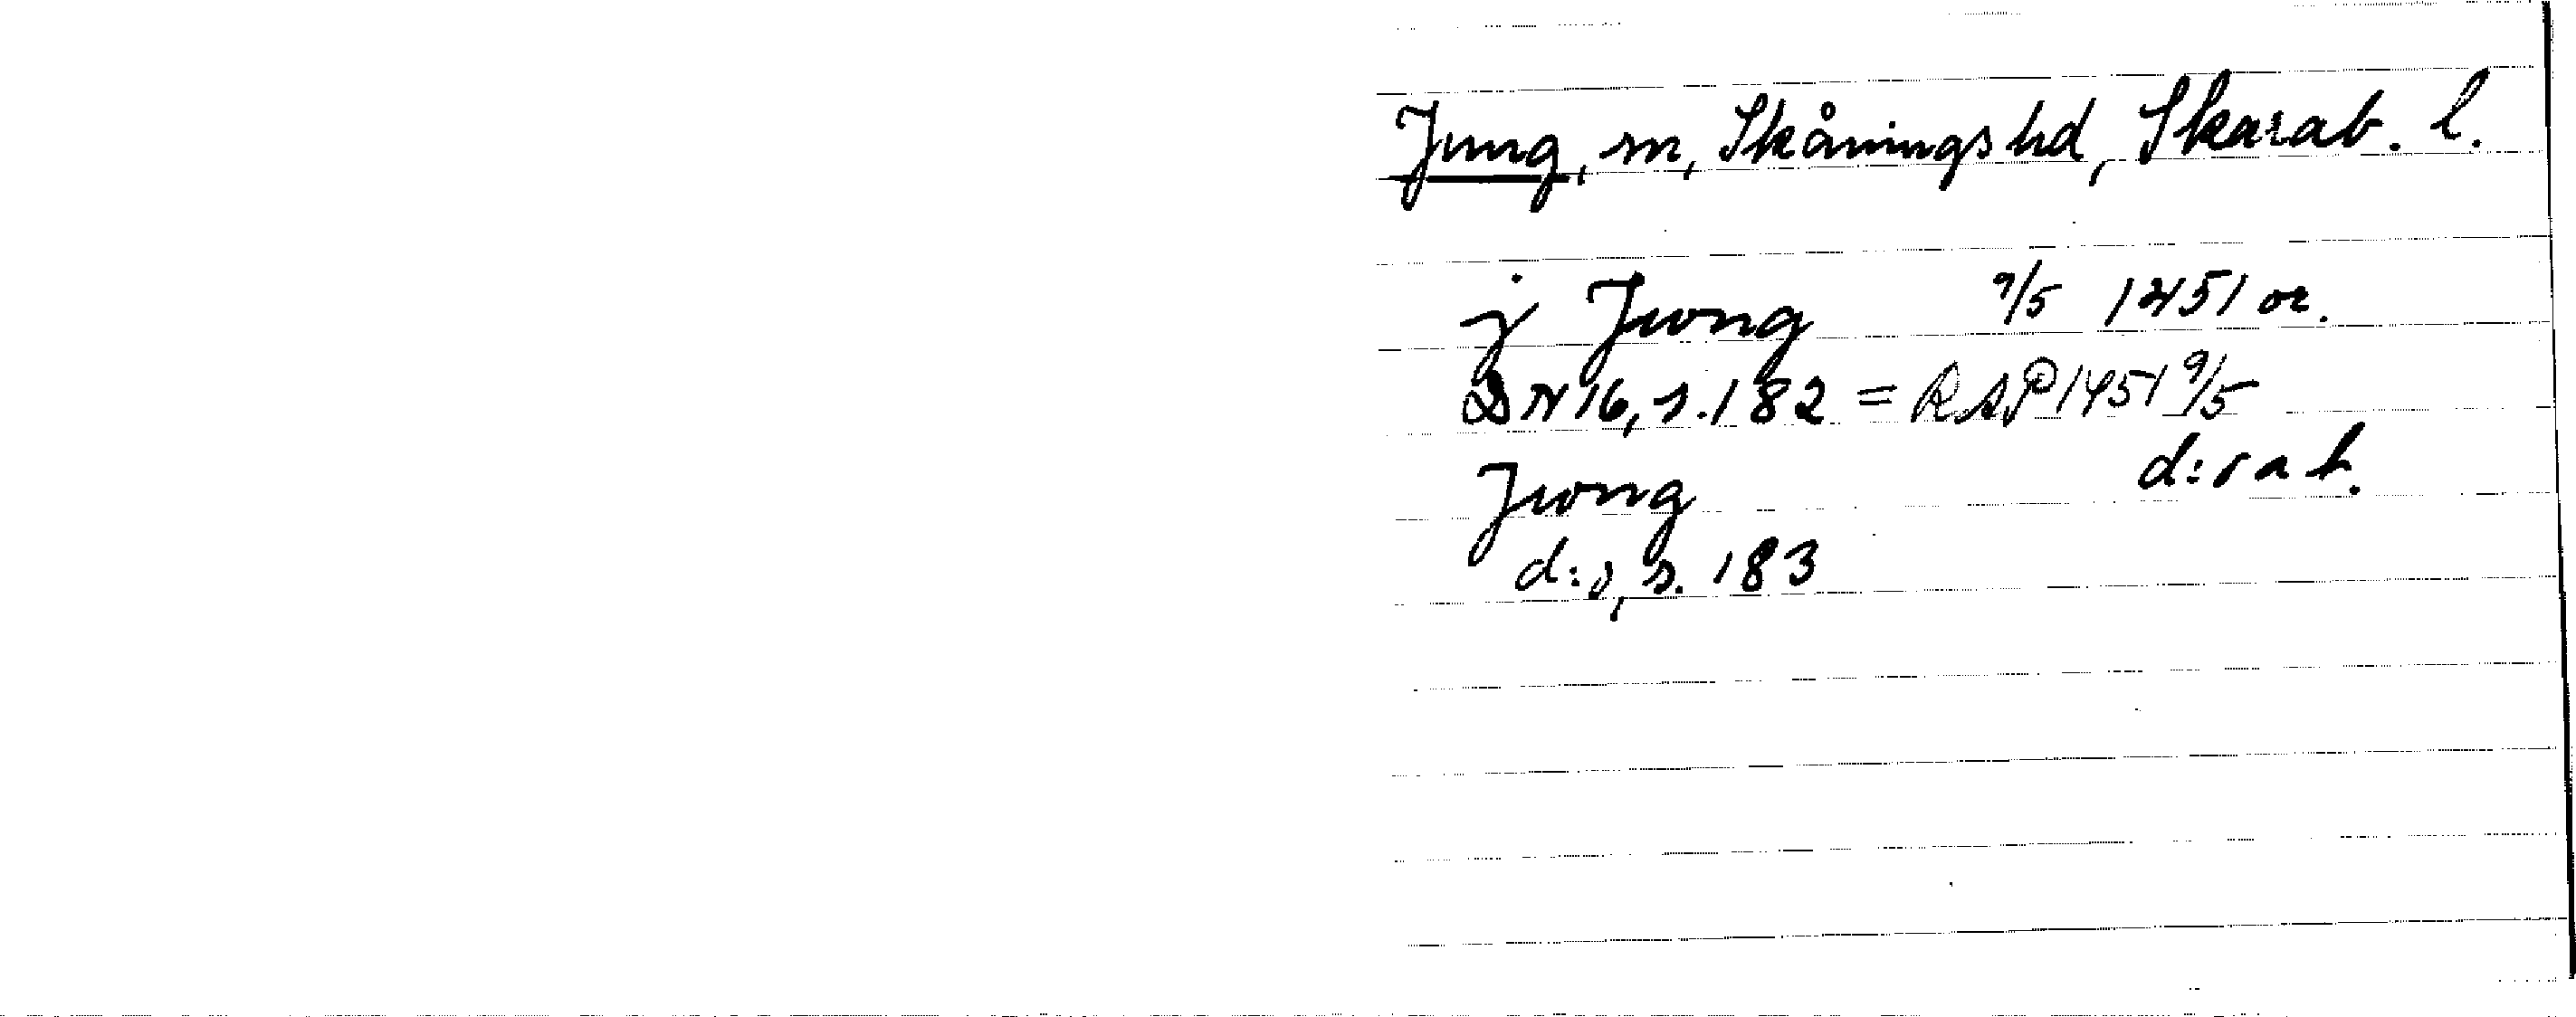 Jung, sn, Skånings hd, Skarab. l.
j Jwong 9/5 1451 or.
DN 16, s. 182 = RAP 1451 9/5
Jwong d:o a b.
d:o, s. 183